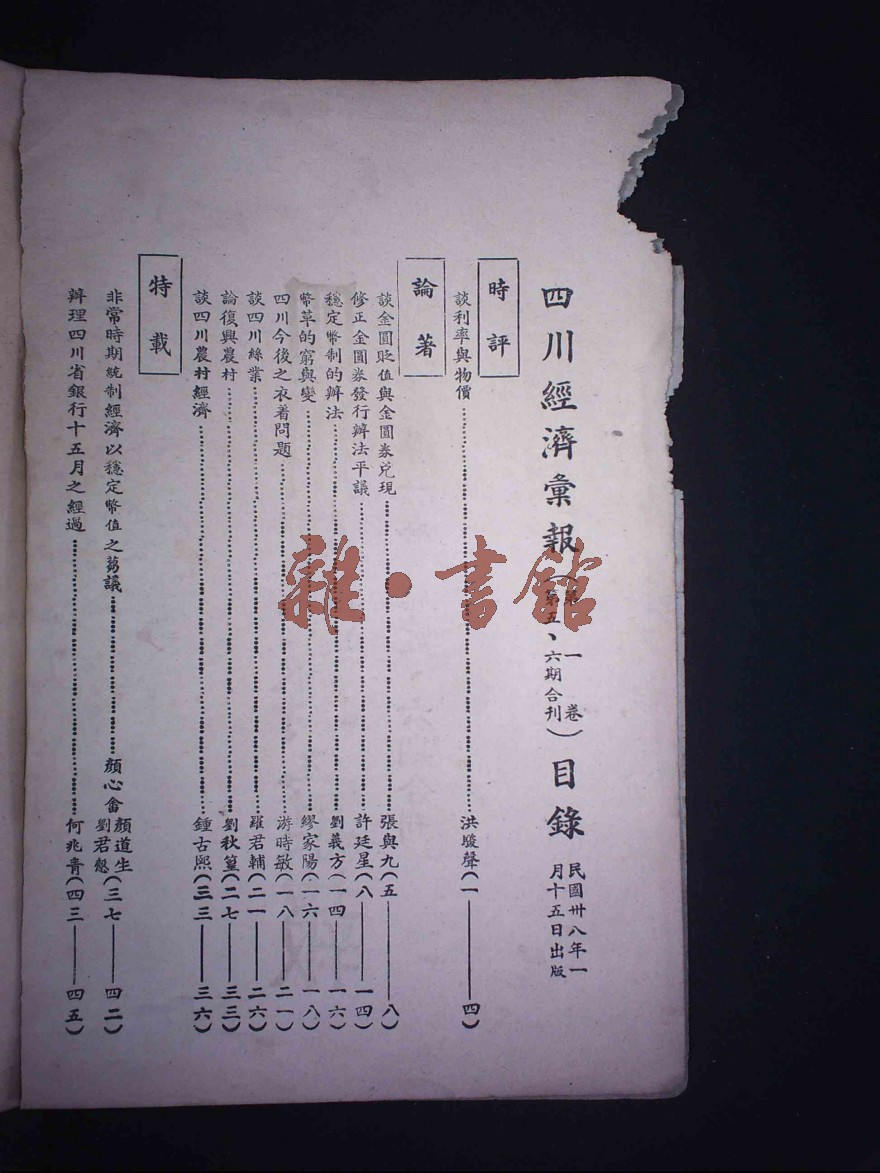 四川經濟彙報（第一卷
第五、六期合刊）目錄
民國卅八年一
月十五日出版
時評
談利率與物價……洪駿聲（一——四）
論著
談金圓貶值與金圓券兌現……張與九（五——八）
修正金圓券發行辦法平議……許廷星（八——一四）
穩定幣制的辦法……劉義方（一四——一六）
幣革的窮與變……繆家陽（一六——一八）
四川今後之衣着問題……游時敏（一八——二一）
談四川絲業……羅君輔（二一——二六）
論復興農村……劉秋篁（二七——三三）
談四川農村經濟……鍾古熙（三三——三六）
特載
非常時期統制經濟以穩定幣值之芻議……顏心畬 顏道生
劉君慇（三七——四二）
辦理四川省銀行十五月之經過……何兆青（四三——四五）
雜·書館